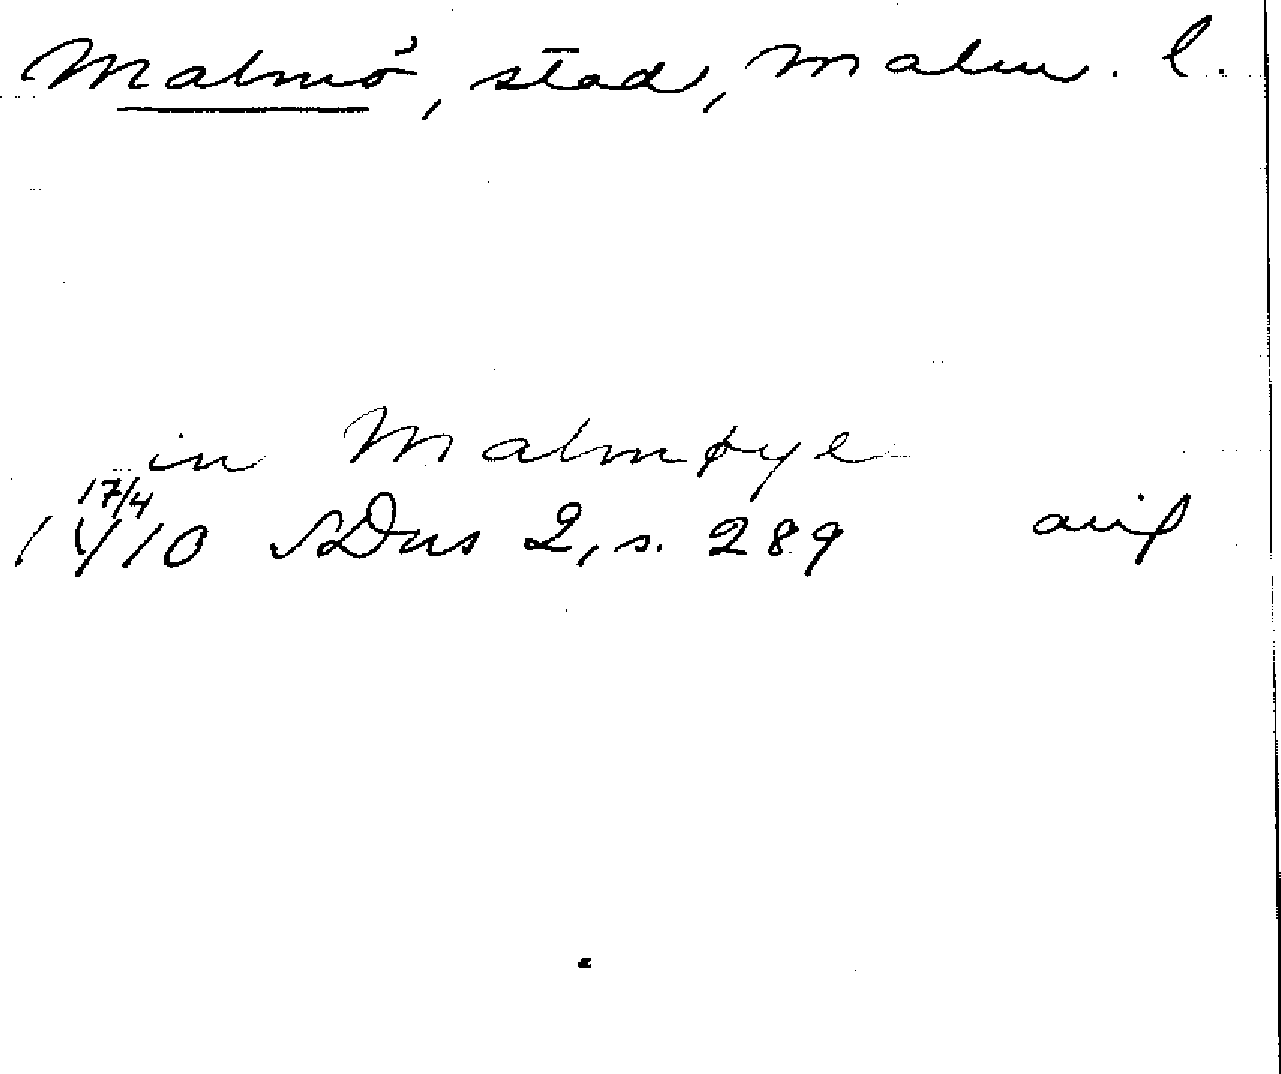 Malmö, stad, Malm. l.
in Malmøye
17/4
1410 SDns 2, s. 289 avs